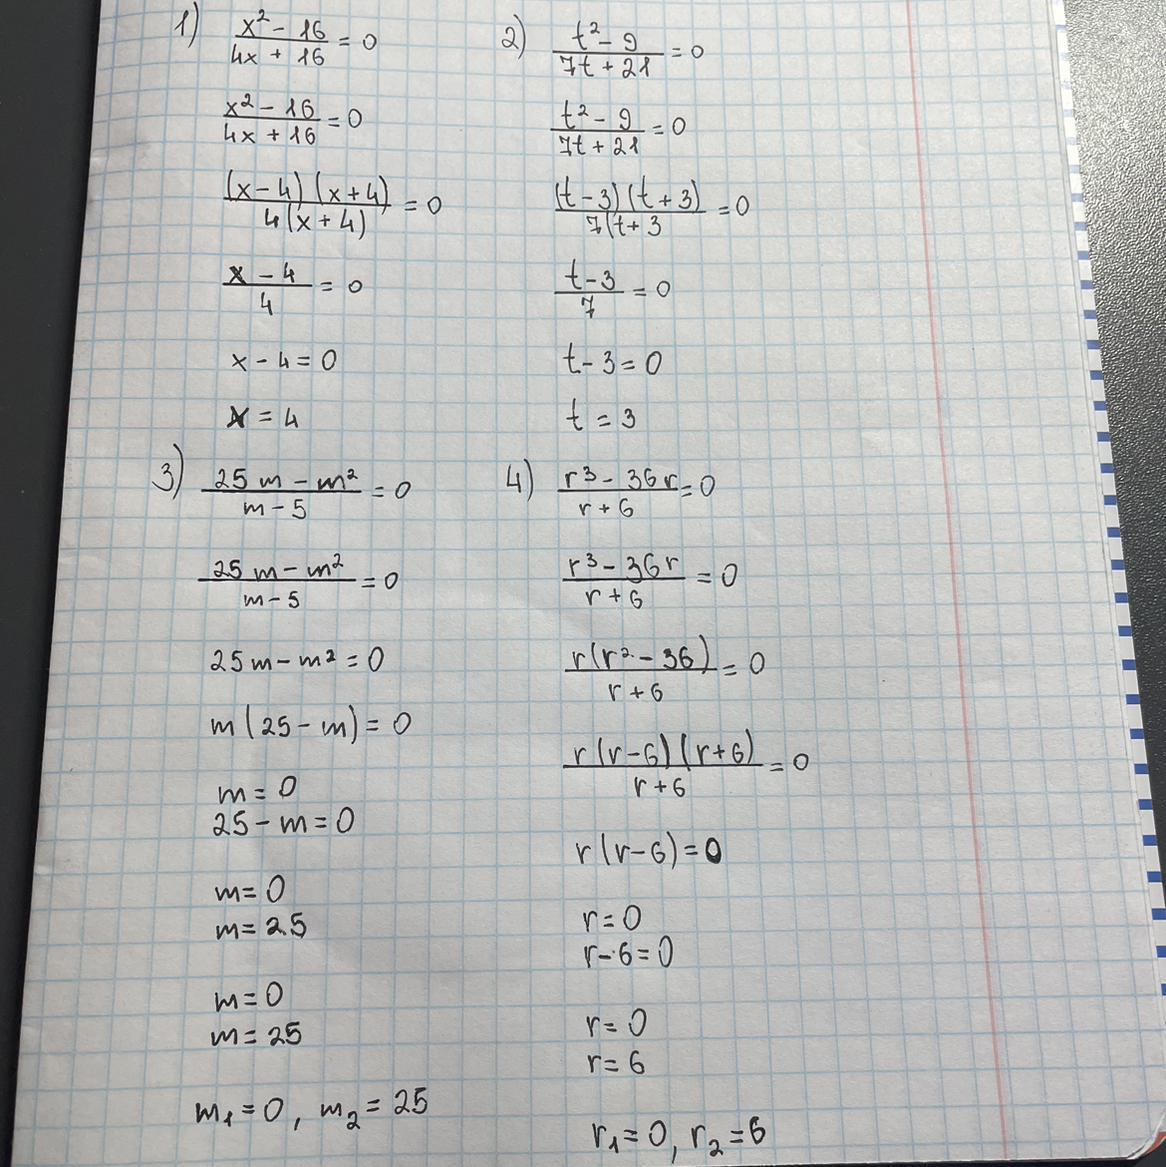 1) x² - 16 / 4x + 16 = 0
x² - 16 / 4x + 16 = 0
(x - 4) (x + 4) / 4(x + 4) = 0
x - 4 / 4 = 0
x - 4 = 0
x = 4
2) t² - 9 / 7t + 21 = 0
t² - 9 / 7t + 21 = 0
(t - 3) (t + 3) / 7(t + 3 = 0
t - 3 / 7 = 0
t - 3 = 0
t = 3
3) 25m - m² / m - 5 = 0
25m - m² / m - 5 = 0
25m - m² = 0
m(25 - m) = 0
m = 0
25 - m = 0
m = 0
m = 25
m = 0
m = 25
m₁ = 0, m₂ = 25
4) r³ - 36r / r + 6 = 0
r³ - 36r / r + 6 = 0
r(r² - 36) / r + 6 = 0
r(r - 6) (r + 6) / r + 6 = 0
r(r - 6) = 0
r = 0
r - 6 = 0
r = 0
r = 6
r₁ = 0, r₂ = 6